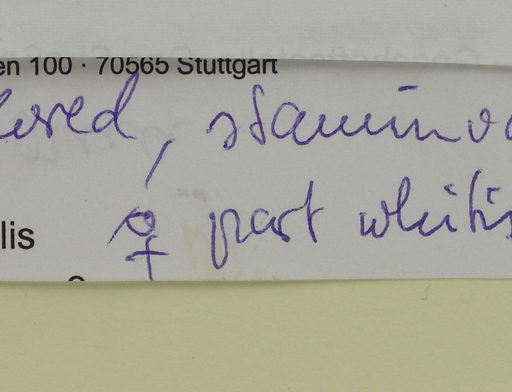 en 100 · 70565 Stuttgart
lored, staminod
lis ♀ part whitis